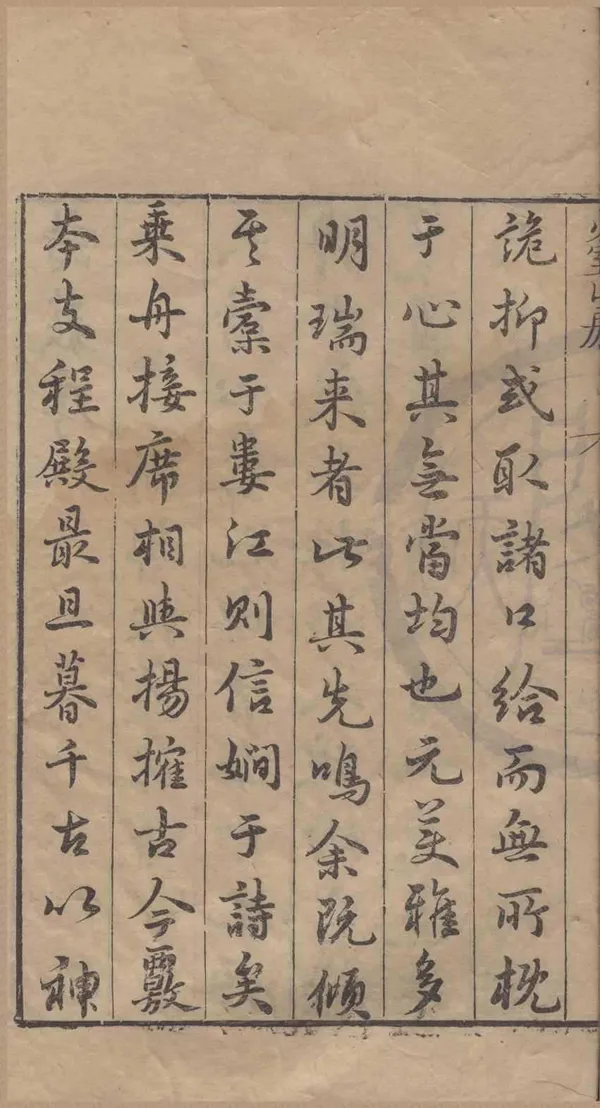 少室山房
詭抑或取諸口給而無所枕
于心其無當均也元美雅多
明瑞来者此其先鳴余既傾
其橐于婁江則信嫺于詩矣
乗舟接席相與揚搉古今覈
本支程殿最旦暮千古以神